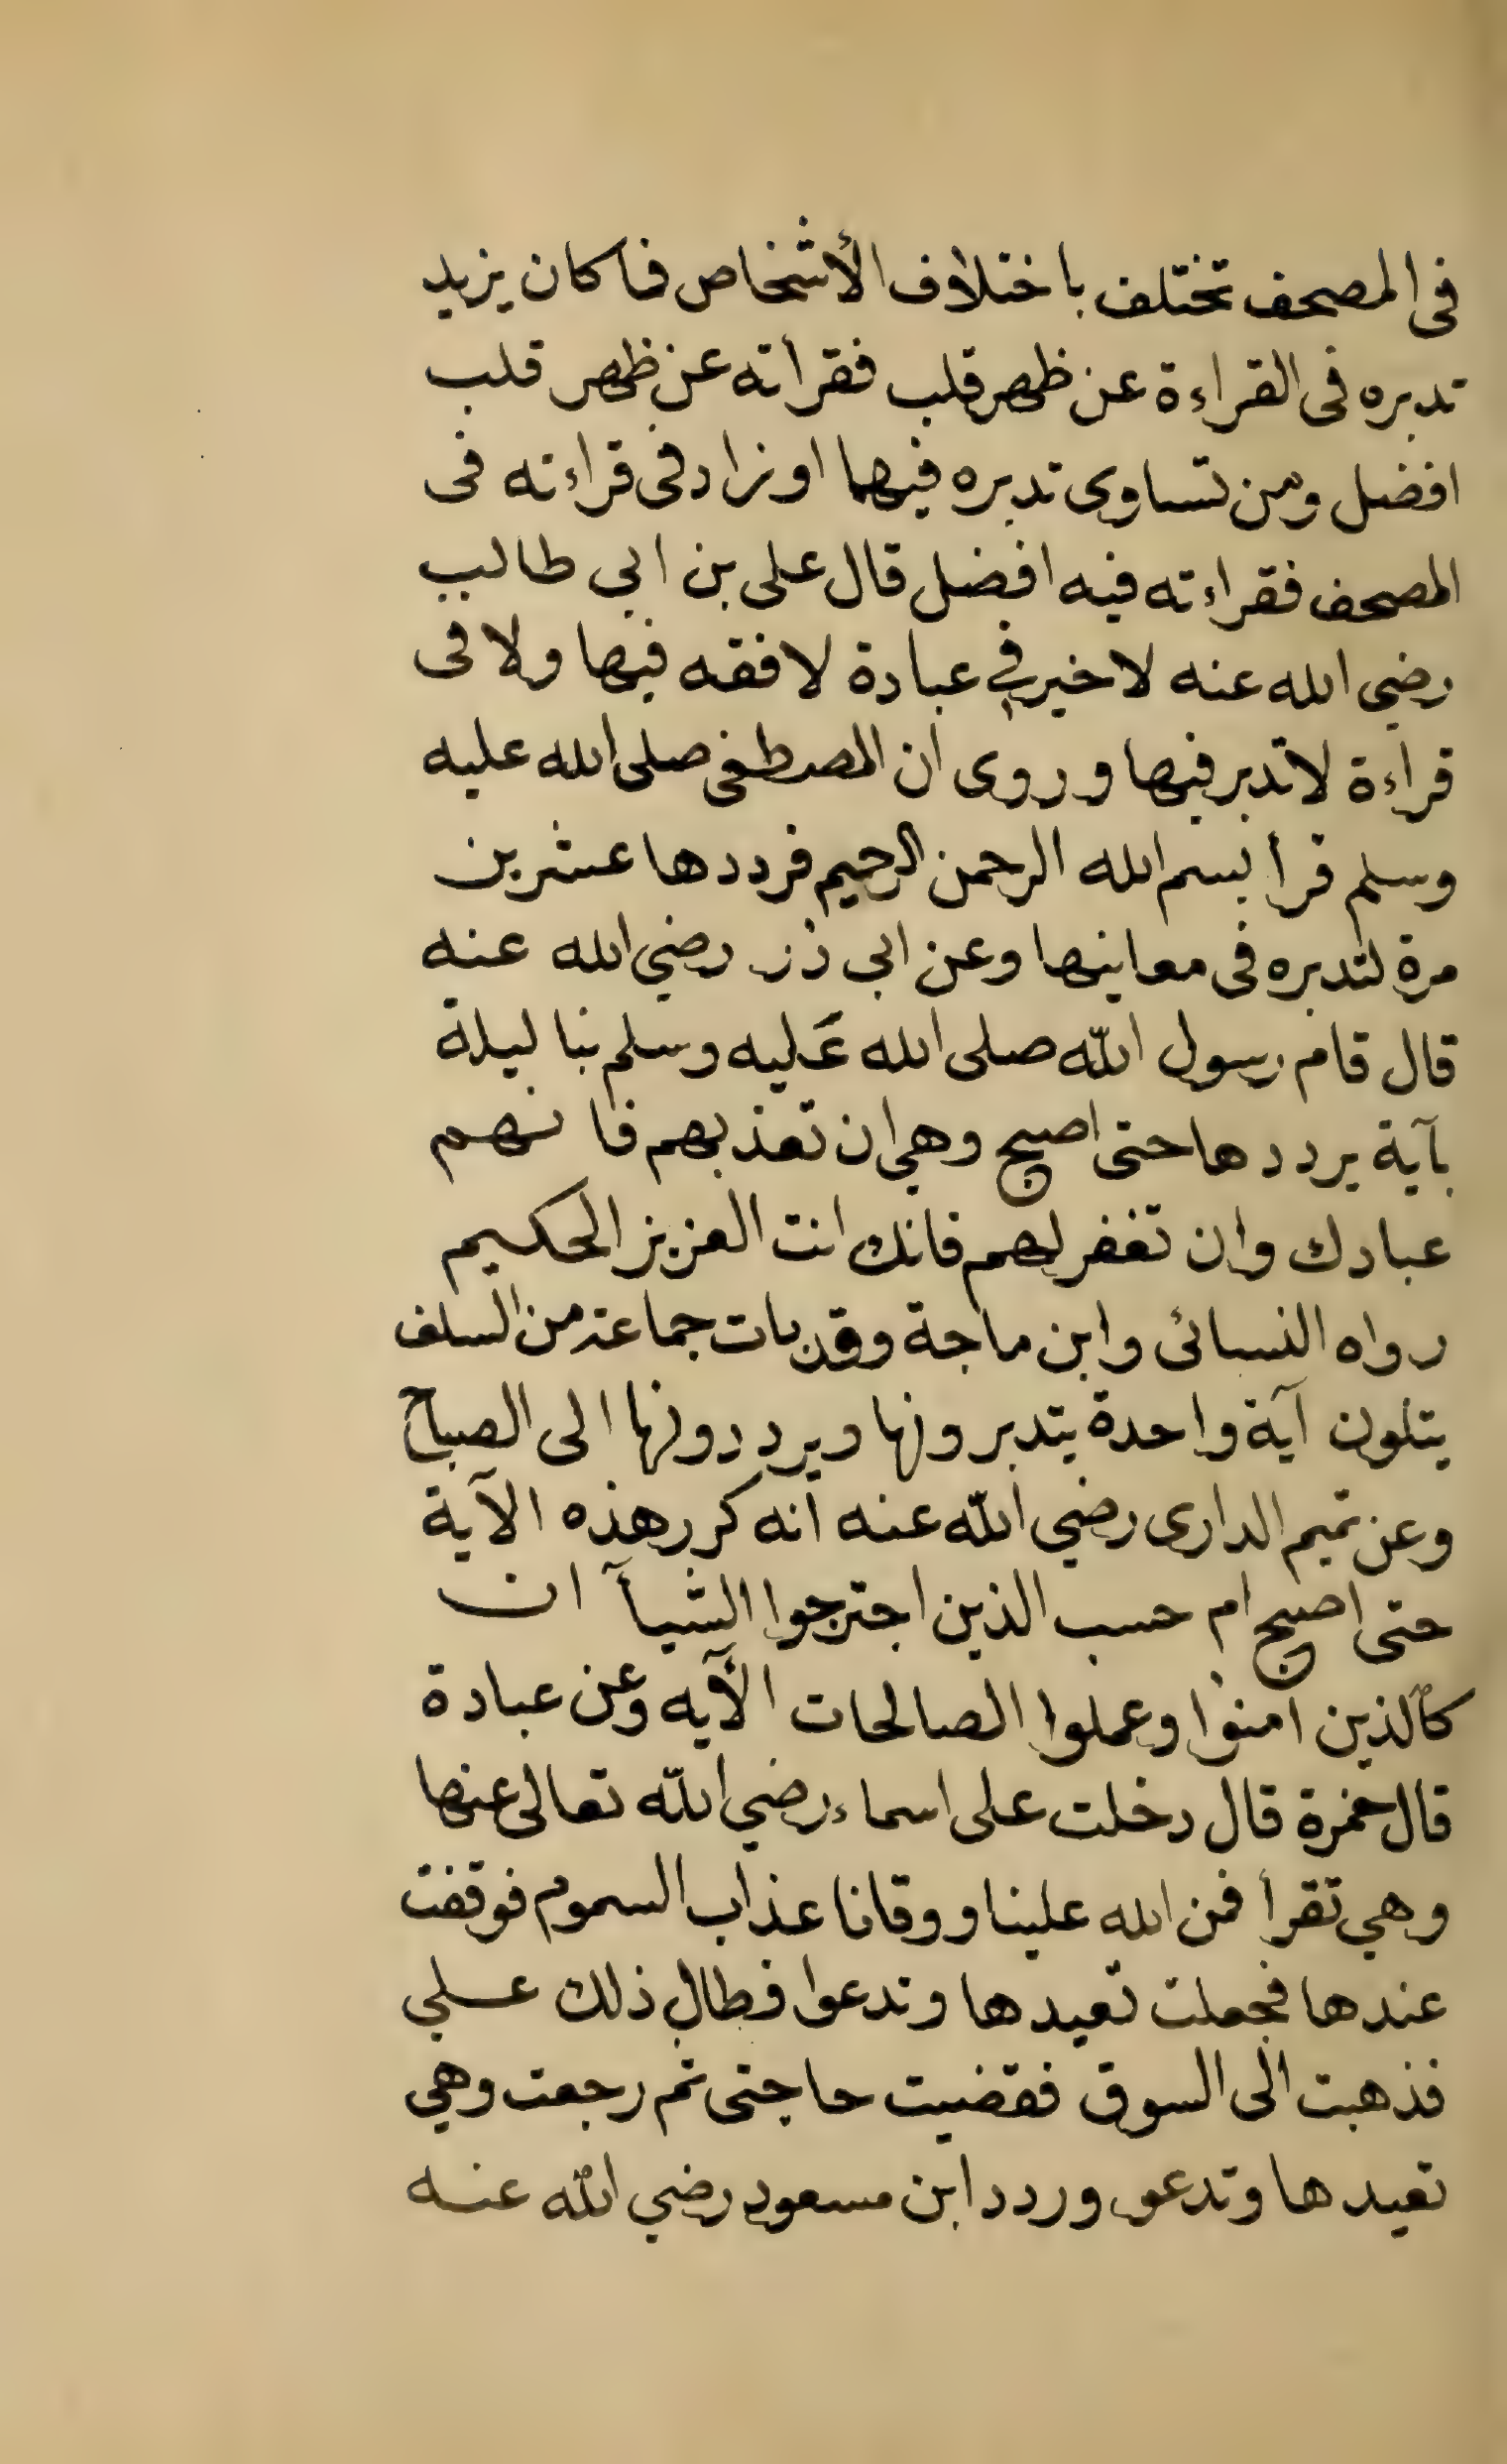 فى المصحف تختلف باختلاف الأشخاص فما كان يزيد
تدبره فى القراءة عن ظهر قلب فقرأته عن ظهر قلب
افضل ومن تساوى تدبره فيهما او زاد فى قراءته فى
المصحف فقراءته فيه افضل قال على بن ابي طالب
رضي الله عنه لا خير في عبادة لا فقه فيها ولا فى
قراءة لا تدبر فيها وروى ان المصطفى صلى الله عليه
وسلم قرأ بسم الله الرحمن الرحيم فرددها عشرين
مرة لتدبره فى معاينها وعن ابى ذر رضي الله عنه
قال قام رسول اللّه صلى الله عَليه وسلم بنا ليلة
بآية يرددها حتى اصبح وهي ان تعذبهم فانهم
عبادك وان تغفر لهم فانك انت العزيز الحكيم
رواه النسائى وابن ماجة وقد بات جماعة من السلف
يتلون آية واحدة يتدبرونها ويرددونها الى الصباح
وعن تميم الدارى رضي اللّه عنه انه كرر هذه الآية
حتى اصبح ام حسب الذين اجترحوا السيآت ان
كالذين امنوا وعملوا الصالحات الآيه وعن عبادة
قال حمزة قال دخلت على اسماء رضي اللّه تعالى عنها
وهي تقرأ فمن الله علينا ووقانا عذاب السموم فوقفت
عندها فجعلت تعيدها وتدعوا فطال ذلك علي
فذهبت الى السوق فقضيت حاجتى ثم رجعت وهي
تعيدها وتدعو وردد ابن مسعود رضي اللّه عنه